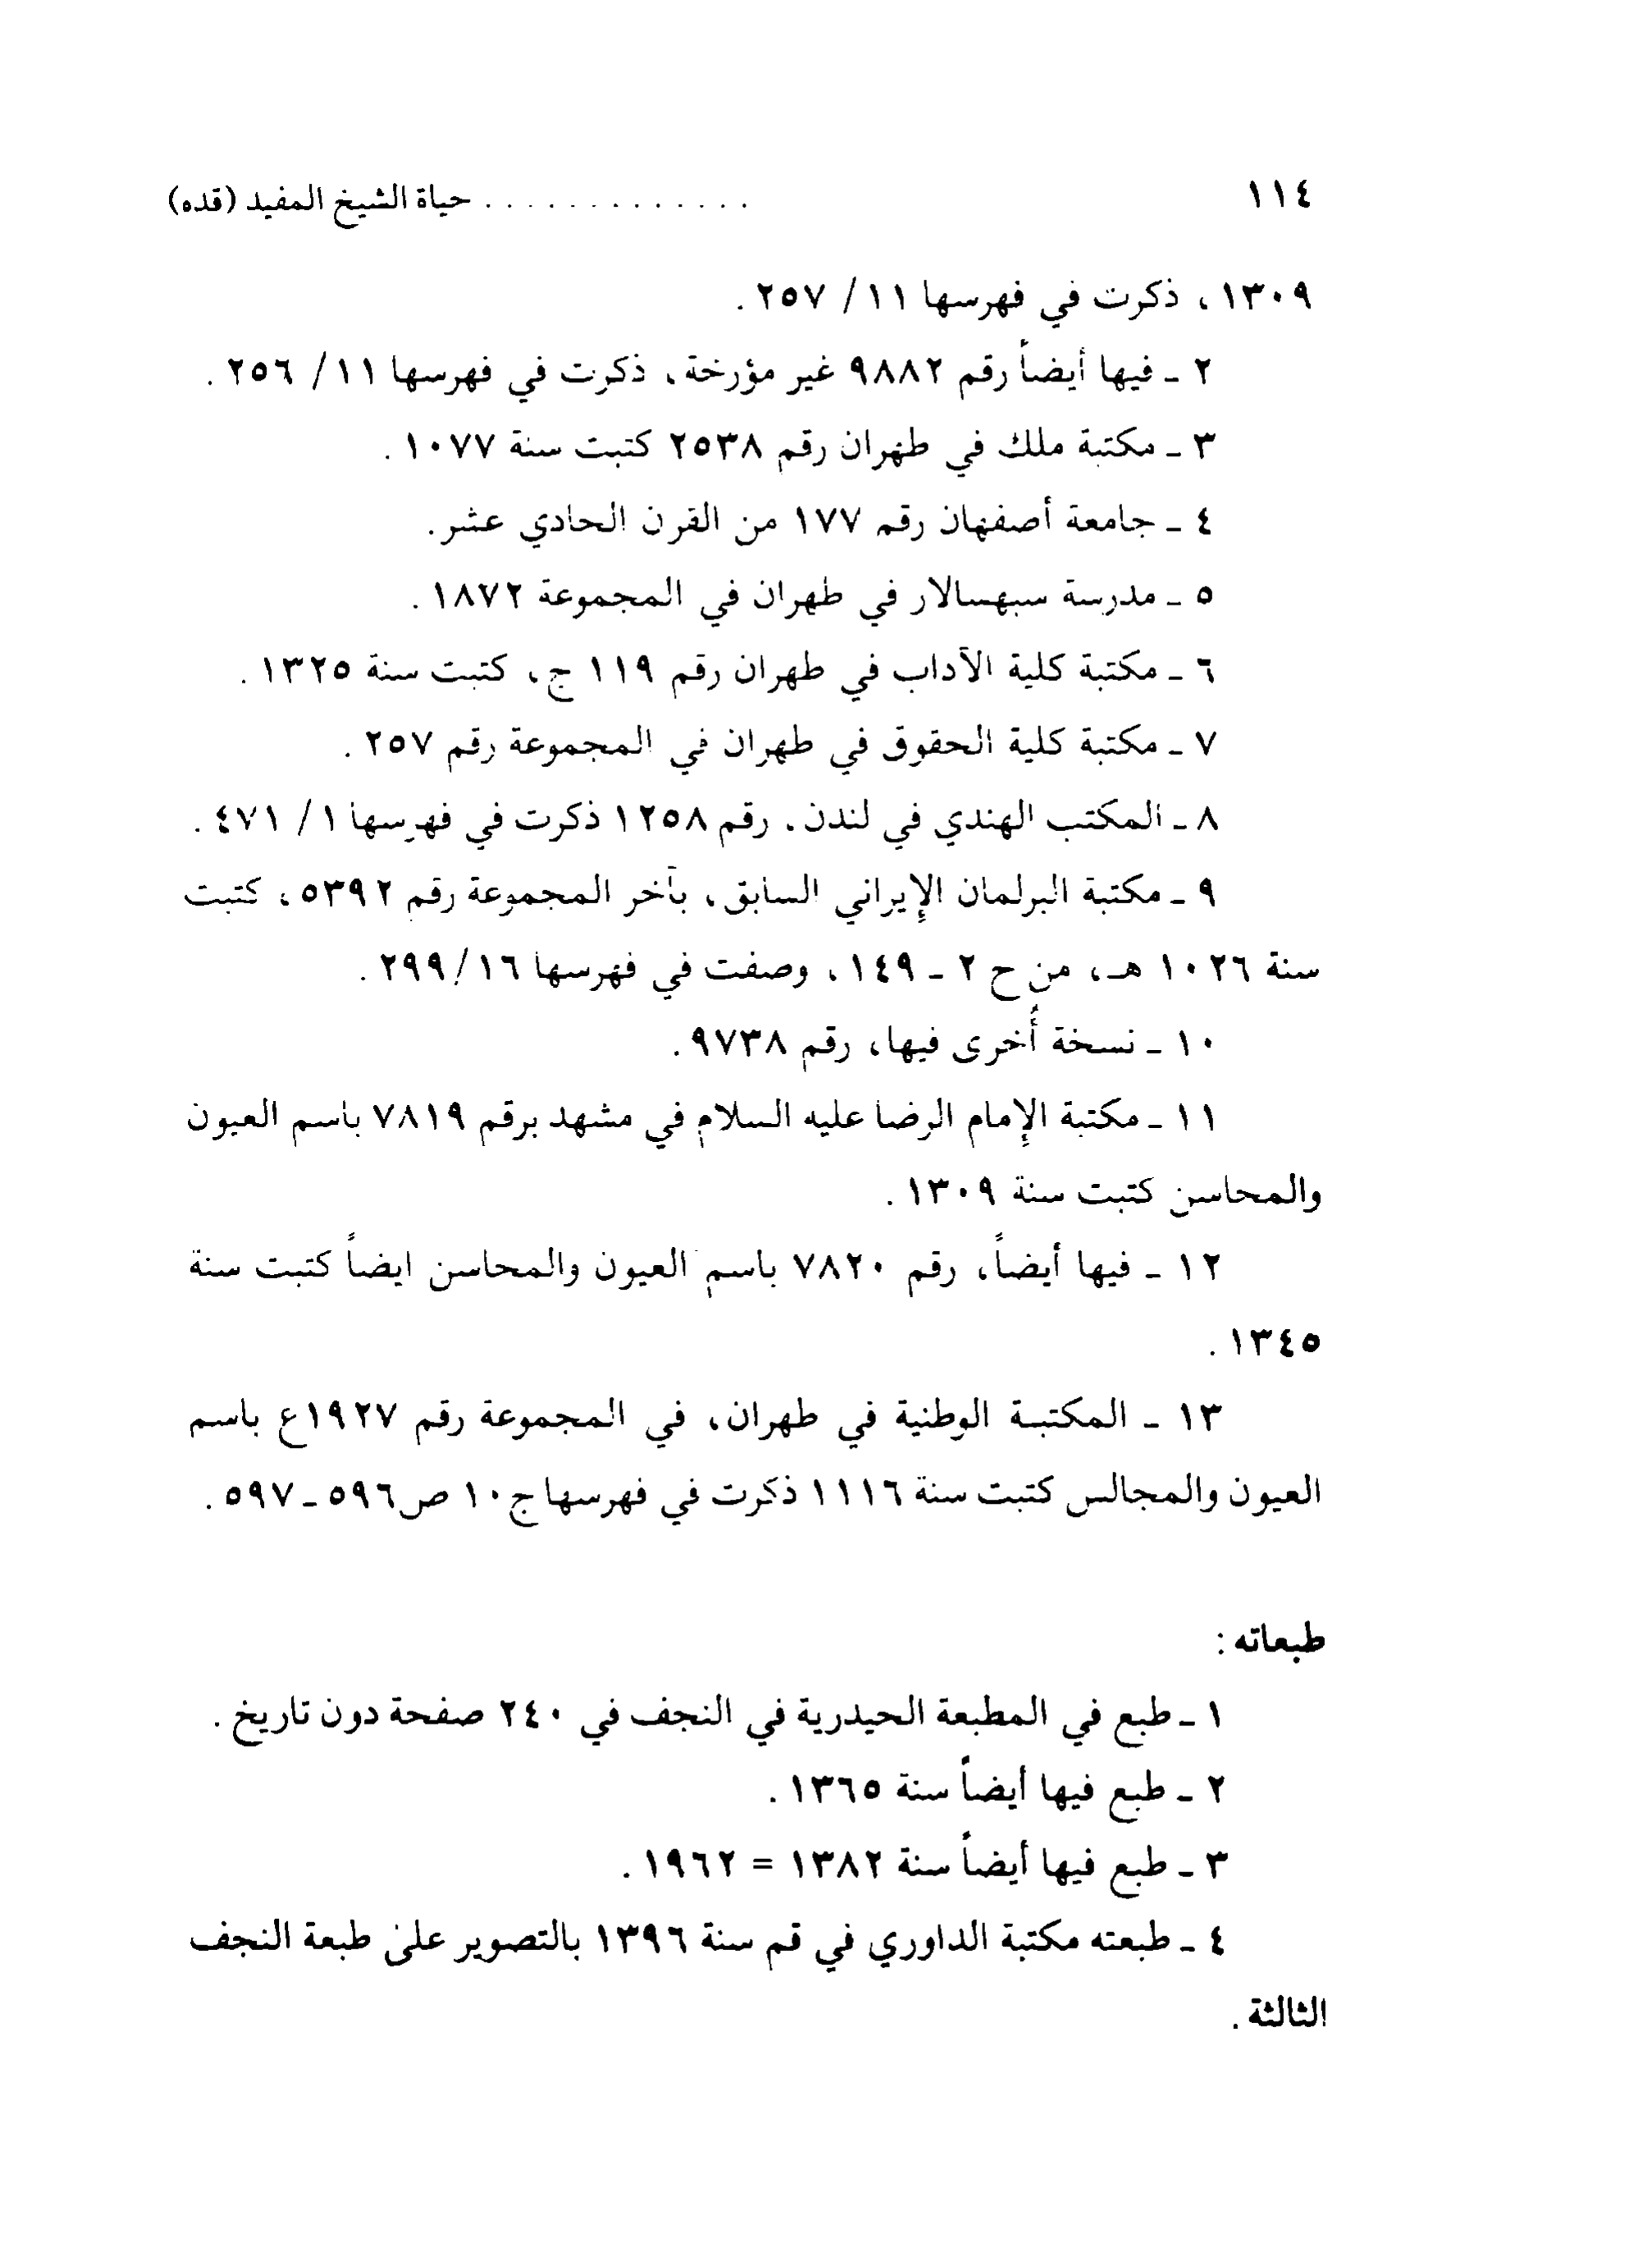 ١١٤ . . . . . . . . . . . . . حياة الشيخ المفيد (قده)
١٣٠٩ ، ذكرت في فهرسها ١١ / ٢٥٧ .
٢ ـ فيها أيضاً رقم ٩٨٨٢ غير مؤرخة ، ذكرت في فهرسها ١١ / ٢٥٦ .
٣ ـ مكتبة ملك في طهران رقم ٢٥٣٨ كتبت سنة ١٠٧٧ .
٤ ـ جامعة أصفهان رقم ١٧٧ من القرن الحادي عشر .
٥ ـ مدرسة سبهسالار في طهران في المجموعة ١٨٧٢ .
٦ ـ مكتبة كلية الآداب في طهران رقم ١١٩ ج ، كتبت سنة ١٣٢٥ .
٧ ـ مكتبة كلية الحقوق في طهران في المجموعة رقم ٢٥٧ .
٨ ـ المكتب الهندي في لندن ، رقم ١٢٥٨ ذكرت في فهرسها ١ / ٤٧١ .
٩ ـ مكتبة البرلمان الإيراني السابق ، بآخر المجموعة رقم ٥٣٩٢ ، كتبت
سنة ١٠٢٦ هـ ، من ح ٢ ـ ١٤٩ ، وصفت في فهرسها ١٦/ ٢٩٩ .
١٠ ـ نسخة أُخرى فيها ، رقم ٩٧٣٨ .
١١ ـ مكتبة الإمام الرضا عليه السلام في مشهد برقم ٧٨١٩ باسم العيون
والمحاسن كتبت سنة ١٣٠٩ .
١٢ ـ فيها أيضاً ، رقم ٧٨٢٠ باسم العيون والمحاسن ايضاً كتبت سنة
١٣٤٥ .
١٣ ـ المكتبة الوطنية في طهران ، في المجموعة رقم ١٩٢٧ع باسم
العيون والمجالس كتبت سنة ١١١٦ ذكرت في فهرسها ج ١٠ ص ٥٩٦ ـ ٥٩٧ .
طبعاته :
١ ـ طبع في المطبعة الحيدرية في النجف في ٢٤٠ صفحة دون تاريخ .
٢ ـ طبع فيها أيضاً سنة ١٣٦٥ .
٣ ـ طبع فيها أيضاً سنة ١٣٨٢ = ١٩٦٢ .
٤ ـ طبعته مكتبة الداوري في قم سنة ١٣٩٦ بالتصوير على طبعة النجف
الثالثة .